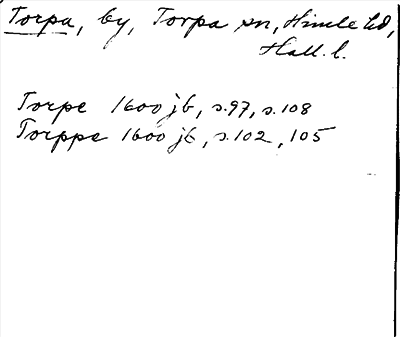 Torpa, by, Torpa sn, Himle hd,
Hall. l.
Torpe 1600 jb, s.97, s.108
Torppe 1600 jb, s.102, 105